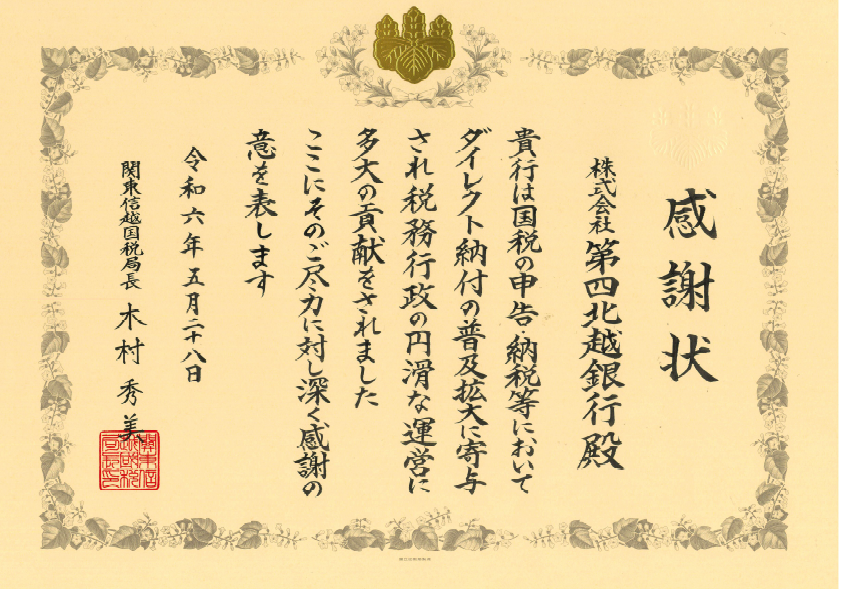 感謝状
株式会社 第四北越銀行殿
貴行は国税の申告・納税等において
ダイレクト納付の普及拡大に寄与
され税務行政の円滑な運営に
多大の貢献をされました
ここにそのご尽力に対し深く感謝の
意を表します
令和六年五月二十八日
関東信越国税局長 木村秀美